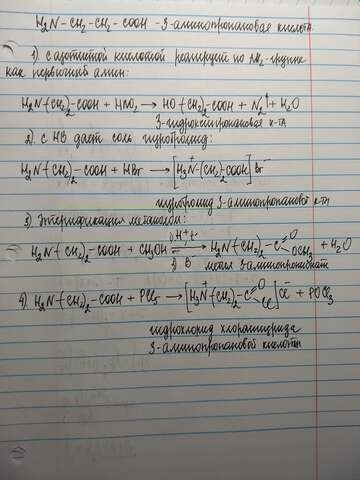 H₂N-CH₂-CH₂-COOH - 3-аминопропановая кислота.
1) с азотистой кислотой реагирует по NH₂-группе
как первичный амин:
H₂N(CH₂)₂-COOH + HNO₂ → HO-(CH₂)₂-COOH + N₂↑ + H₂O
3-гидроксипропановая к-та
2) с HB даст соль гидробромид:
H₂N-(CH₂)₂-COOH + HBr → [H₃N⁺-(CH₂)₂COOH]Br⁻
гидробромид 3-аминопропановой к-ты
3) Этерификация метанолом:
H₂N-(CH₂)₂-COOH + CH₃OH 1) H⁺, t° 2) B⁻ ⇌ H₂N-(CH₂)₂-C(=O)OCH₃ + H₂O
метил 3-аминопропионат
4) H₂N-(CH₂)₂-COOH + PCl₅ → [H₃N⁺-(CH₂)₂-C(=O)Cl]Cl⁻ + POCl₃
гидрохлорид хлорангидрида
3-аминопропановой кислоты